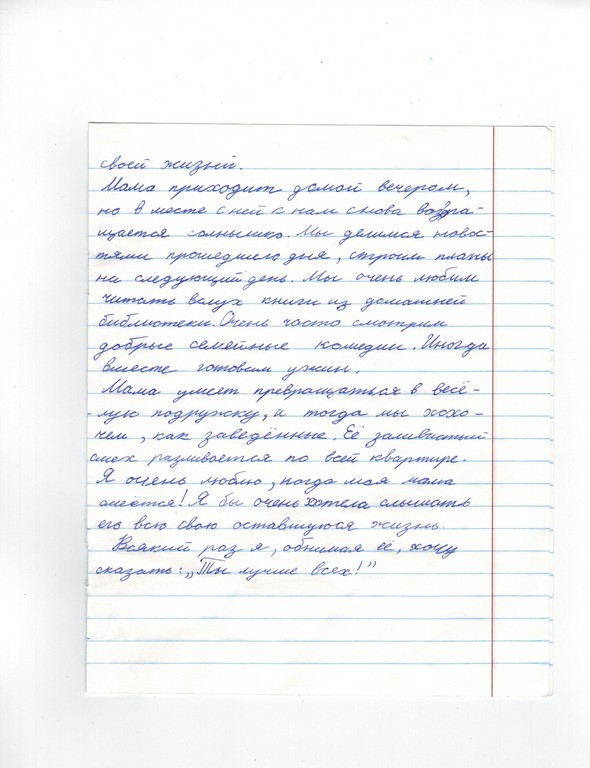 своей жизни.
Мама приходит домой вечером,
но в месте с ней к нам снова возвра-
щается солнышко. Мы делимся новос-
тями прошедшего дня, строим планы
на следующий день. Мы очень любим
читать вслух книги из домашней
библиотеки. Очень часто смотрим
добрые семейные комедии. Иногда
вместе готовим ужин.
Мама умеет превращаться в весё-
лую подружку, и тогда мы хохо-
чем, как заведённые. Её заливистый
смех разливается по всей квартире.
Я очень люблю, когда моя мама
смеётся! Я бы очень хотела слышать
его всю свою оставшуюся жизнь.
Всякий раз я, обнимая её, хочу
сказать: „Ты лучше всех!"